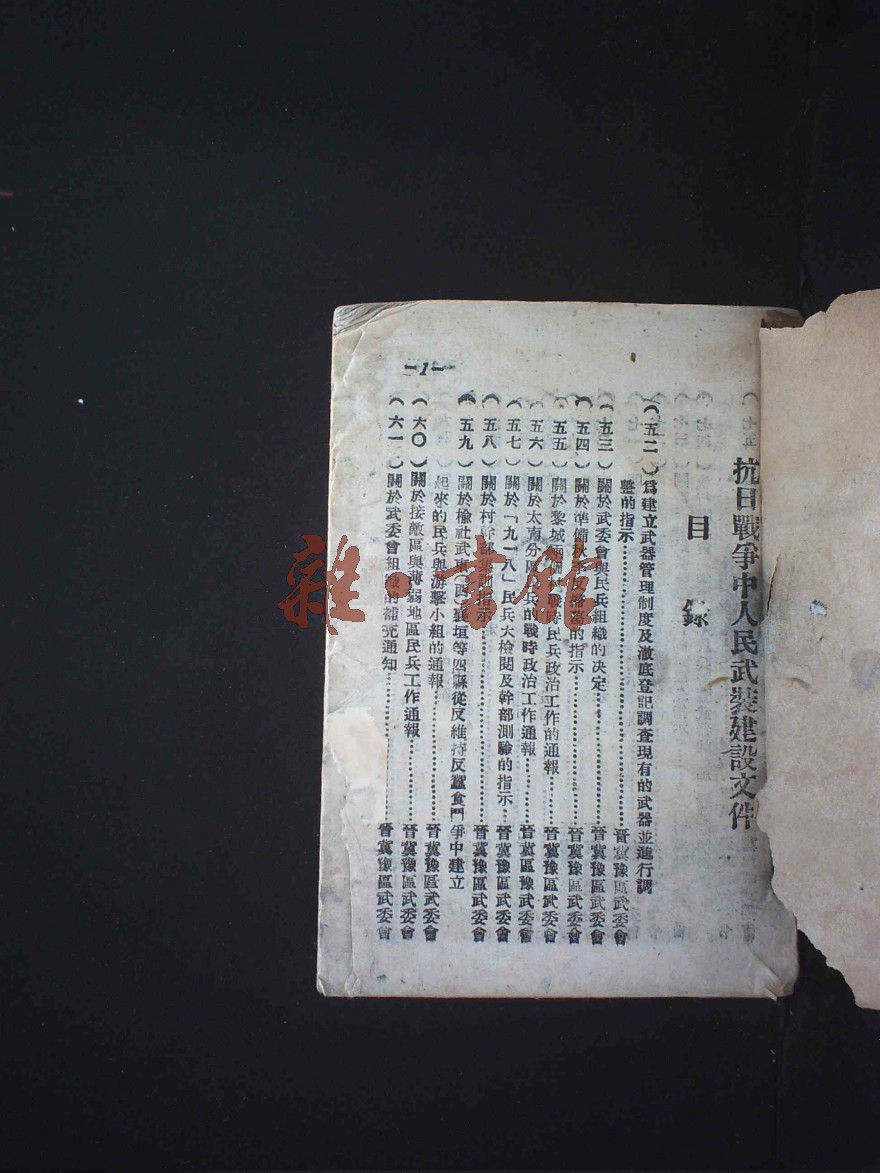 抗日戰爭中人民武裝建設文件
目錄
（五二）為建立武器管理制度及澈底登記調查現有的武器並進行調
整的指示……晉冀豫區武委會
（五三）關於武委會與民兵組織的决定……晉冀豫區武委會
（五四）關於準備秋季反掃蕩的指示……晉冀豫區武委會
（五五）關於黎城戰時民兵政治工作的通報……晉冀豫區武委會
（五六）關於太南分區民兵的戰時政治工作通報……晉冀豫區武委會
（五七）關於「九一八」民兵大檢閱及幹部測驗的指示…晉冀豫區武委會
（五八）關於村幹部集訓指示……晉冀豫區武委會
（五九）關於榆社武東（西）襄垣等四縣從反維持反蠶食鬥爭中建立
起來的民兵與游擊小組的通報……晉冀豫區武委會
（六〇）關於接敵區與薄弱地區民兵工作通報……晉冀豫區武委會
（六一）關於武委會組織的補充通知……晉冀豫區武委會
-1-
雜·書館